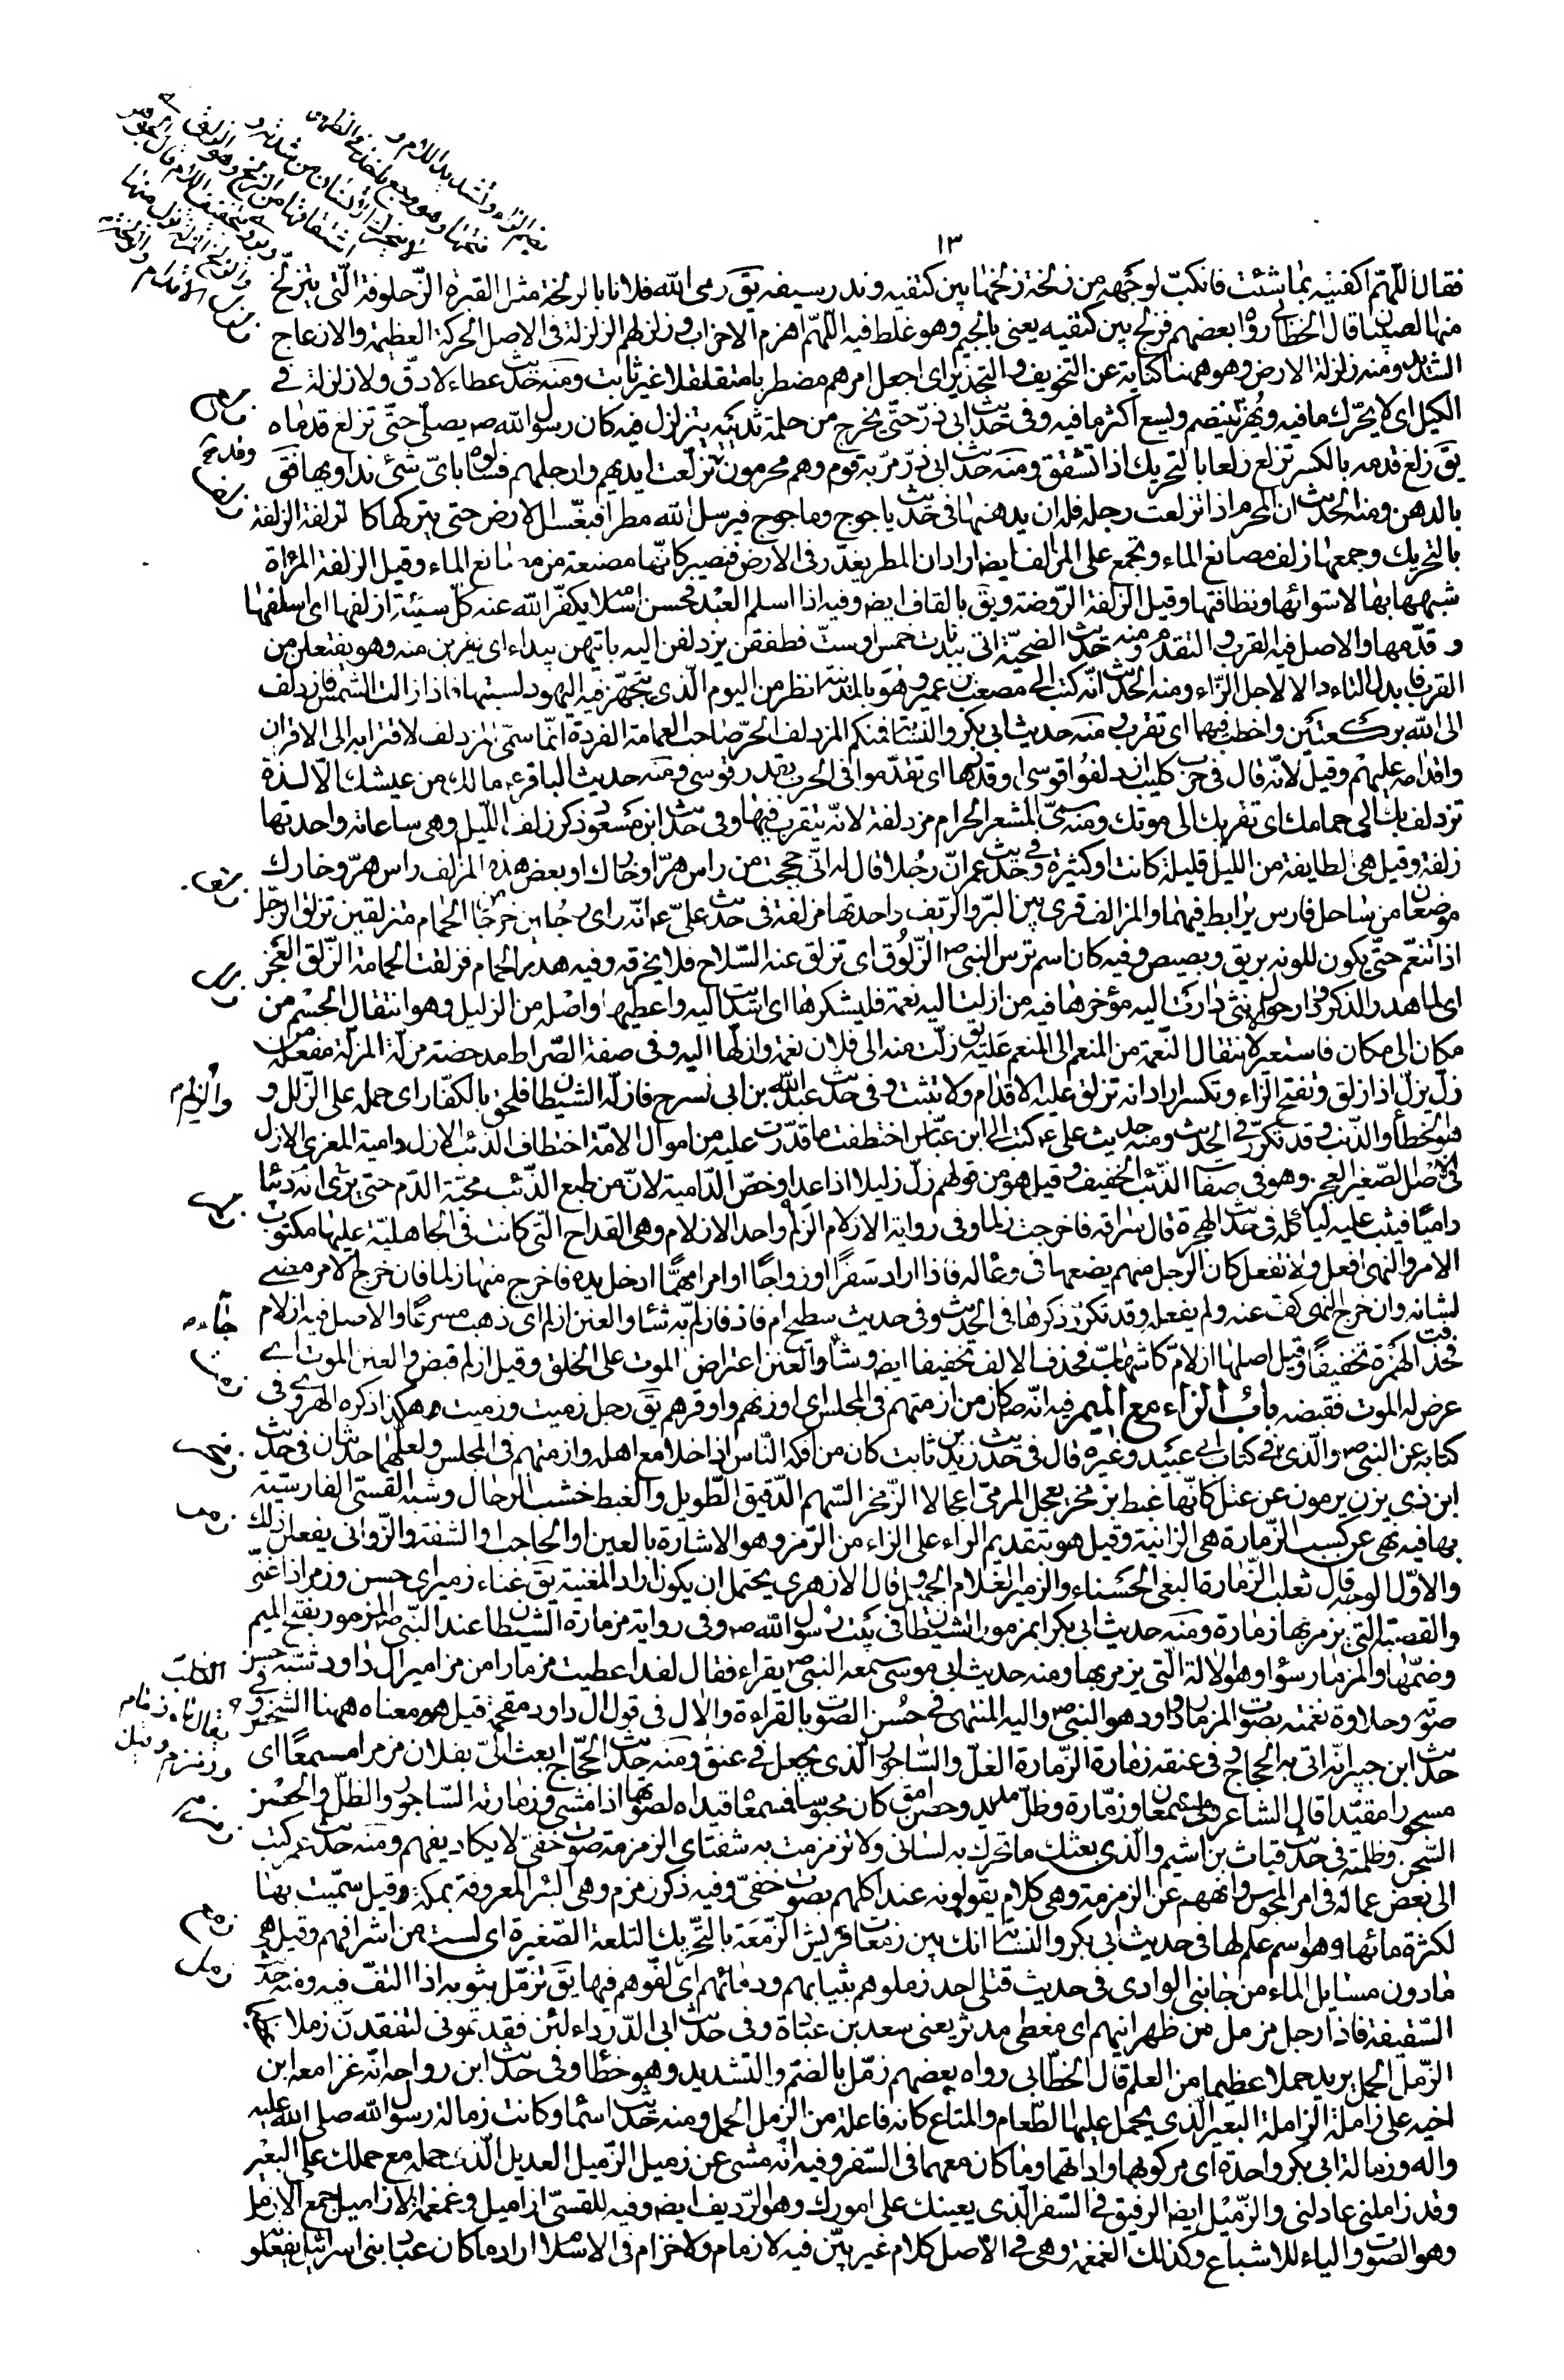 ١٣
فقال اللهمّ اكفنيه بما شئت فانكبّ لوجهه من زلخة زلخها بين كتفيه وندر سيفه يق رمى الله فلانا بالزلخة مثل القبرة الزّحلوقة الّتى يتزلخ
منها الصبيان قال الخطابى رواه بعضهم فزلج بين كتفيه يعنى بالجيم وهو غلط فيه اللهمّ اهزم الاحزاب وزلزلهم الزلزلة فى الاصل الحركة العظيمة والازعاج
الشديد ومنه زلزلة الارض وهو ههنا كناية عن التخويف والتحذير اى اجعل امرهم مضطربا متقلقلا غير ثابت ومنه حديث عطاء لا دقّ ولا زلزلة فى
الكيل اى لا يحرّك ما فيه ويهزّ لينضم ويسع اكثر مما فيه وفى حديث ابى ذرّ حتى يخرج من حلمة ثدييه يتزلزل فيه كان رسول الله ص يصلّى حتّى تزلع قدماه
يق زلع قدمه بالكسر تزلع زلعا بالتحريك اذا تشقق ومنه حديث ابى ذرّ مرّ به قوم وهم محرمون تزلّعت ايديهم وارجلهم فسالوه باىّ شئ نداويها فق
بالدهن ومنه الحديث ان المحرم اذا تزلعت رجله فله ان يدهنها فى حديث ياجوج وماجوج فيرسل الله مطرا فيغسل الارض حتى يتركها كالزلفة الزلفة
بالتحريك وجمعها زلف مصانع الماء وتجمع على المزالف ايض اراد ان المطر يغدّر فى الارض فتصير كانّها مصنعة من مصانع الماء وقيل الزلفة المراة
شبهها بها لاستوائها ونظافتها وقيل الزلفة الرّوضة ويق بالقاف ايض وفيه اذا اسلم العبد فحسن اسلامه يكفّر الله عنه كلّ سيئة ازلفها اى اسلفها
وقدّمها والاصل فيه القرب والتقدم ومنه حديث الضحيّة اتى ببدنات خمس او ستّ فطفقن يزدلفن اليه بايتهن يبداء اى يقربن منه وهو يفتعلن من
القرب فابدل التاء دالا لاجل الزّاء ومنه الحديث انّه كتب الى مصعب بن عمير وهو بالمدينة انظر من اليوم الّذى يتجهّز فيه اليهود لسبتها فاذا زالت الشمس فازدلف
الى الله بركعتين واخطب فيهما اى تقرب ومنه حديث ابى بكر والنسّابة فمنكم المزدلف الحرّ صاحب العمامة الفردة انّما سمّى المزدلف لاقترابه الى الاقران
واقدامه عليهم وقيل لانّه قال فى حرب كليب ازدلفوا قوسى او قدرها اى تقدّموا فى الحرب بقدر قوسى ومنه حديث الباقر ع مالك من عيشك الّا لذة
تزدلف بك الى حمامك اى تقربك الى موتك ومنه سمّى المشعر الحرام مزدلفة لانّه يتقرب فيها وفى حديث ابن مسعود ذكر زلف اللّيل وهى ساعاته واحدتها
زلفة وقيل هى الطايفة من الليل قليلة كانت او كثيرة وفى حديث عمر انّ رجلا قال له انّى حججت من راس هرّ او خارك او بعض هذه المزالف راس هرّ وخارك
موضعان من ساحل فارس يرابط فيهما والمزالف قرى بين البرّ والرّيف واحدتها مزلفة فى حديث علىّ ع انّه راى رجلين خرجا من الحمام متزلقين تزلق الرّجل
اذا تنعّم حتّى يكون للونه بريق وبصيص وفيه كان اسم ترس النبى ص الزّلوق اى تزلق عنه السّلاح فلا يخرقه وفيه هدر الحمام فزلقت الحمامة الزّلق العجز
اى لما هدر الذكر ودار حول الانثى دارت اليه مؤخرها فيه من ازلت اليه نعمة فليشكرها اى اسديت اليه واعطيها واصله من الزليل وهو انتقال الجسم من
مكان الى مكان فاستعير لانتقال النّعمة من المنعم الى المنعم عليه يق زلّت منه الى فلان نعمة وازلّها اليه وفى صفة الصّراط مدحضة مزلّة المزلّة مفعلة من
زلّ يزلّ اذا زلق وتفتح الزّاء وتكسر اراد انه تزلق عليه الاقدام ولا تثبت وفى حديث عبد الله بن ابى سرح فازلّه الشيطان فلحق بالكفّار اى حمله على الزّلل و
هو الخطأ والذّنب وقد تكرّر فى الحديث ومنه حديث علىّ ع كتب الى ابن عبّاس اختطفت ما قدرت عليه من اموال الامّة اختطاف الذئب الازلّ دامية المعزى الازل
فى الاصل الصّغير العجز وهو فى صفات الذّئب الخفيف وقيل هو من قولهم زلّ زليلا اذا عدا وخصّ الدّامية لانّ من طبع الذّئب محبّة الدّم حتى يرى انه ذئبا
داميا فيثب عليه لياكله فى حديث الهجرة قال سراقة فاخرجت زلما وفى رواية الازلام الزّلم واحد الازلام وهى القداح التّى كانت فى الجاهليّة عليها مكتوب
الامر والنهى افعل ولا تفعل كان الرجل منهم يضعها فى وعاء له فاذا اراد سفرًا او زواجًا او امرا مهمّا ادخل يده فاخرج منها زلما فان خرج الامر مضى
لشانه وان خرج النهى كفّ عنه ولم يفعله وقد تكرّر ذكرها فى الحديث وفى حديث سطيح ام فاد فازلمّ به شاو العنن ازلم اى ذهب مسرعًا والاصل فيه ازلام
فحذفت الهمزة تخفيفًا وقيل اصلها ازلامّ كاشهابّ فحذف الالف تخفيفا ايض وشأو العنن اعتراض الموت على الخلق وقيل ازلم قبض والعنن الموت اى
عرض له الموت فقبضه باب الزاء مع الميم فيه انّه ص كان من ازمتهم فى المجلس اى اوزنهم واوقرهم يق رجل زميت وزميت هكذا ذكره الهروى فى
كتابه عن النبى ص والّذى فى كتاب ابى عبيد وغيره قال فى حديث زيد بن ثابت كان من افكه النّاس اذا خلا مع اهله وازمتهم فى المجلس ولعلّهما حديثان فى حديث
ابن ذى يزن يرمون عن عتل كانّها غبط بزمخر يعجل المرمىّ اعجالا الزّمخر السّهم الدّقيق الطّويل والغبط خشب الرحال وشبه القسىّ الفارسيّة
بها فيه نهى عن كسب الزمّارة هى الزانية وقيل هو بتقديم الراء على الزاء من الرّمز وهو الاشارة بالعين او الحاجب او الشفة والزّوانى يفعلن ذلك
والاوّل الوجه قال ثعلب الزمّارة البغى الحسناء والزمير الغلام الجميل وقال الازهرى يحتمل ان يكون اراد المغنية يق غناء زمير اى حسن وزمر اذا غنّى
والقصبة التى يزمر بها زمّارة ومنه حديث ابى بكر ابمزمور الشيطان فى بيت رسول الله ص وفى رواية مزمارة الشيطان عند النّبى ص المزمور بفتح الميم
وضمّها والمزمار سواء وهو الالة الّتى يزمر بها ومنه حديث ابى موسى سمعه النبى ص يقراء فقال لقد اعطيت مزمارا من مزامير ال داود شبّه حسن
صوته وحلاوة نغمته بصوت المزمار وداود هو النبى ص واليه المنتهى فى حسن الصوت بالقراءة والال فى قوله ال داود مقحمة قيل هو معناه ههنا الشخص وفى
حديث ابن جبير انّه اتى به الحجاج وفى عنقه زمّارة الزمّارة الغلّ والسّاجور الّذى يجعل فى عنق ومنه حديث الحجّاج ابعث الىّ بفلان مزمرا مسمعًا اى
مسجورا مقيّدا قال الشاعر ولى مسمعان وزمّارة وظلّ مديد وحصن امق كان محبوسا فمسمعاه قيداه لصوتهما اذا مشى وزمّارته السّاجور والظلّ والحصن
السّجن وظلمته فى حديث قباث بن اشيم والّذى بعثك ما تحرّك به لسانى ولا تزمزمت به شفتاى الزمزمة صوت خفى لا يكاد يفهم ومنه حديث عمر كتب
الى بعض عماله فى امر المجوس وانههم عن الزمزمة وهى كلام يقولونه عند اكلهم بصوت خفىّ وفيه ذكر زمزم وهى البئر المعروفة بمكة وقيل سمّيت بها
لكثرة مائها وهو اسم علم لها فى حديث ابى بكر والنسّابة انك من زمعات قريش الزّمعة بالتحريك التلعة الصّغيرة اى لست من اشرافهم وقيل هى
مادون مسايل الماء من جانبى الوادى فى حديث قتلى احد زملوهم بثيابهم ودمائهم اى لفّوهم فيها يق تزمّل بثوبه اذا التفّ فيه ومنه حديث
السّقيفة فاذا رجل مزمل من ظهرانيهم اى مغطى مدثر يعنى سعد بن عبادة وفى حديث ابى الدّرداء لئن فقدتمونى لتفقدنّ زملا
الزّمل الحمل يريد حملا عظيما من العلم قال الخطّابى رواه بعضهم زمّل بالضّم والتشديد وهو خطأ وفى حديث ابن رواحة انّه غزا معه ابن
اخيه على زاملة الزاملة البعير الّذى يحمل عليها الطّعام والمتاع كانه فاعلة من الزمل الحمل ومنه حديث اسماء وكانت زمالة رسول الله صلى الله عليه
واله وزمالة ابى بكر واحدة اى مركوبهما واداتهما وما كان معهما فى السّفر وفيه انّه مشى عن زميل الزّميل العديل الّذى حمله مع حملك على البعير
وقد زاملنى عادلنى والزّميل ايض الرفيق فى السّفر الّذى يعينك على امورك وهو الرّديف ايض وفيه للقسىّ ازاميل وغمغمة الازاميل جمع الازمل
وهو الصّوت والياء للاشباع وكذلك الغمغمة وهى فى الاصل كلام غير بيّن فيه لا زمام ولا خزام فى الاسلام اراد ما كان عبّاد بنى اسرائيل يفعلو